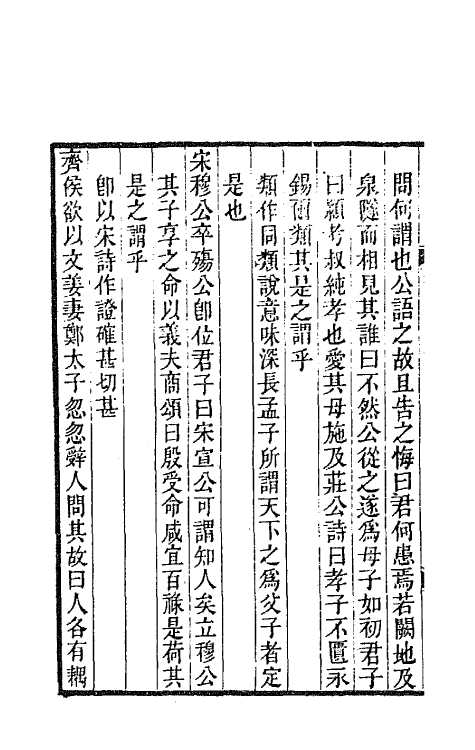 問何謂也公語之故且告之悔曰君何患焉若闕地及
泉隧而相見其誰曰不然公從之遂爲母子如初君子
曰潁考叔純孝也愛其母施及莊公詩曰孝子不匱永
錫爾類其是之謂乎
類作同類說意味深長孟子所謂天下之爲父子者定
是也
宋穆公卒殤公卽位君子曰宋宣公可謂知人矣立穆公
其子享之命以義夫商頌曰殷受命咸宜百祿是荷其
是之謂乎
卽以宋詩作證確甚切甚
齊侯欲以文姜妻鄭太子忽忽辭人問其故曰人各有耦